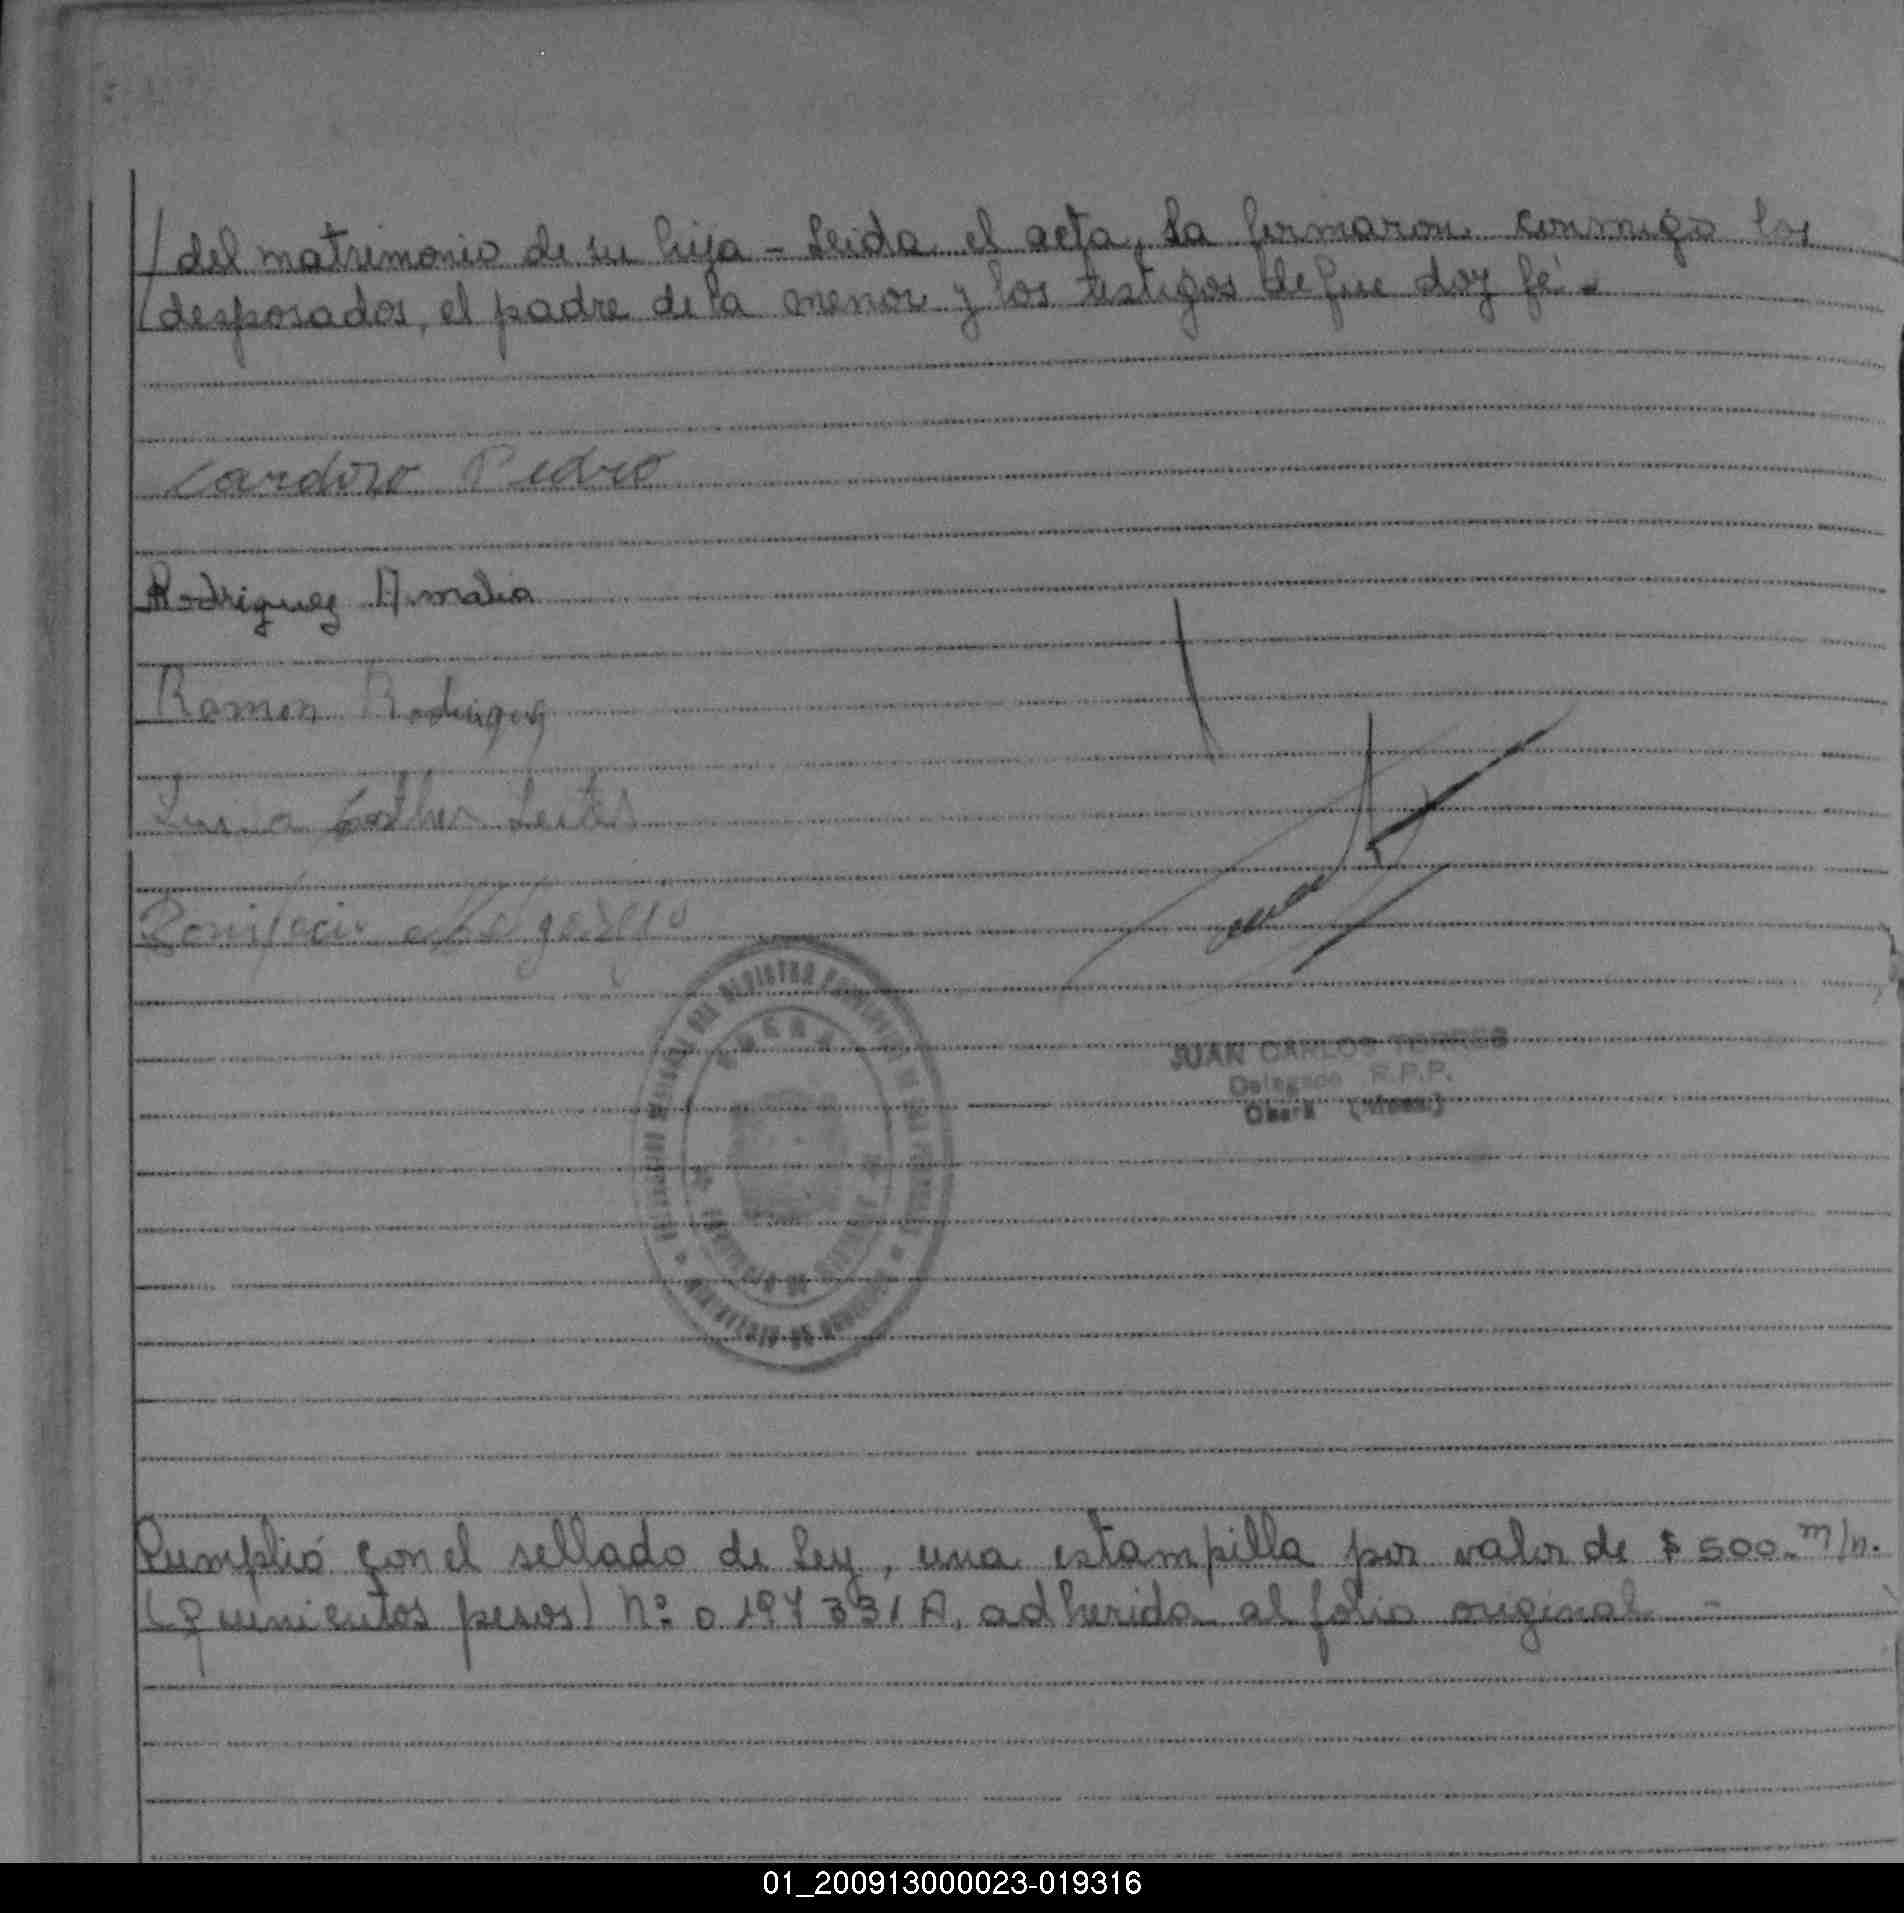 del matrimonio de su hija - Leida el acta, la firmaron conmigo los
desposados, el padre de la menor y los testigos de que doy fé -
Cardozo Pedro
Rodriguez Amalia
Ramon Rodriguez
Luisa Esther Leites
Bonifacio
OBERA
JUAN CARLOS TORRES
Delegado R.P.P.
Oberá (Mnes.)
Cumplió con el sellado de Ley, una estampilla por valor de $ 500.- m/n.
(quinientos pesos) Nº 0197331 A, adherida al folio original -
01_200913000023-019316